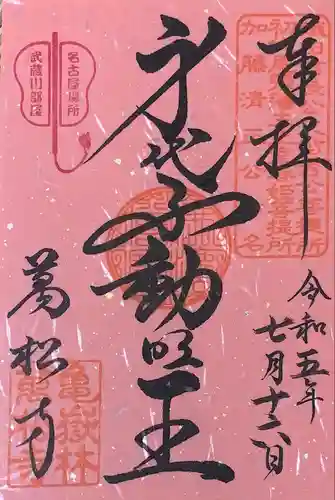 奉拝
身代不動明王
令和五年
七月十六日
萬松寺
名古屋場所
武蔵川部屋
加藤清正公
亀嶽林